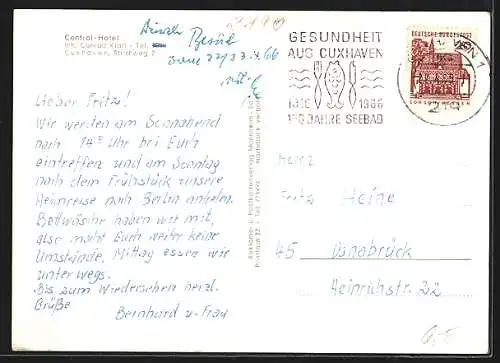 Central-Hotel
Inh. Conrad Klatt - Tel.
Cuxhaven, Strichweg 2
Besuch
GESUNDHEIT
AUS CUXHAVEN
1816 1966
150 JAHRE SEEBAD
DEUTSCHE BUNDESPOST
Lieber Fritz!
Wir werden am Sonnabend
nach 14 Uhr bei Euch
eintreffen und am Sonntag
nach dem Frühstück unsere
Heimreise nach Berlin antreten.
Bettwäsche haben wir mit,
also macht Euch weiter keine
Umstände. Mittag essen wir
unterwegs.
Bis zum Wiedersehen herzl.
Grüße
Bernhard u. Frau
Herrn
Fritz Heine
45 Osnabrück
Heinrichstr. 22